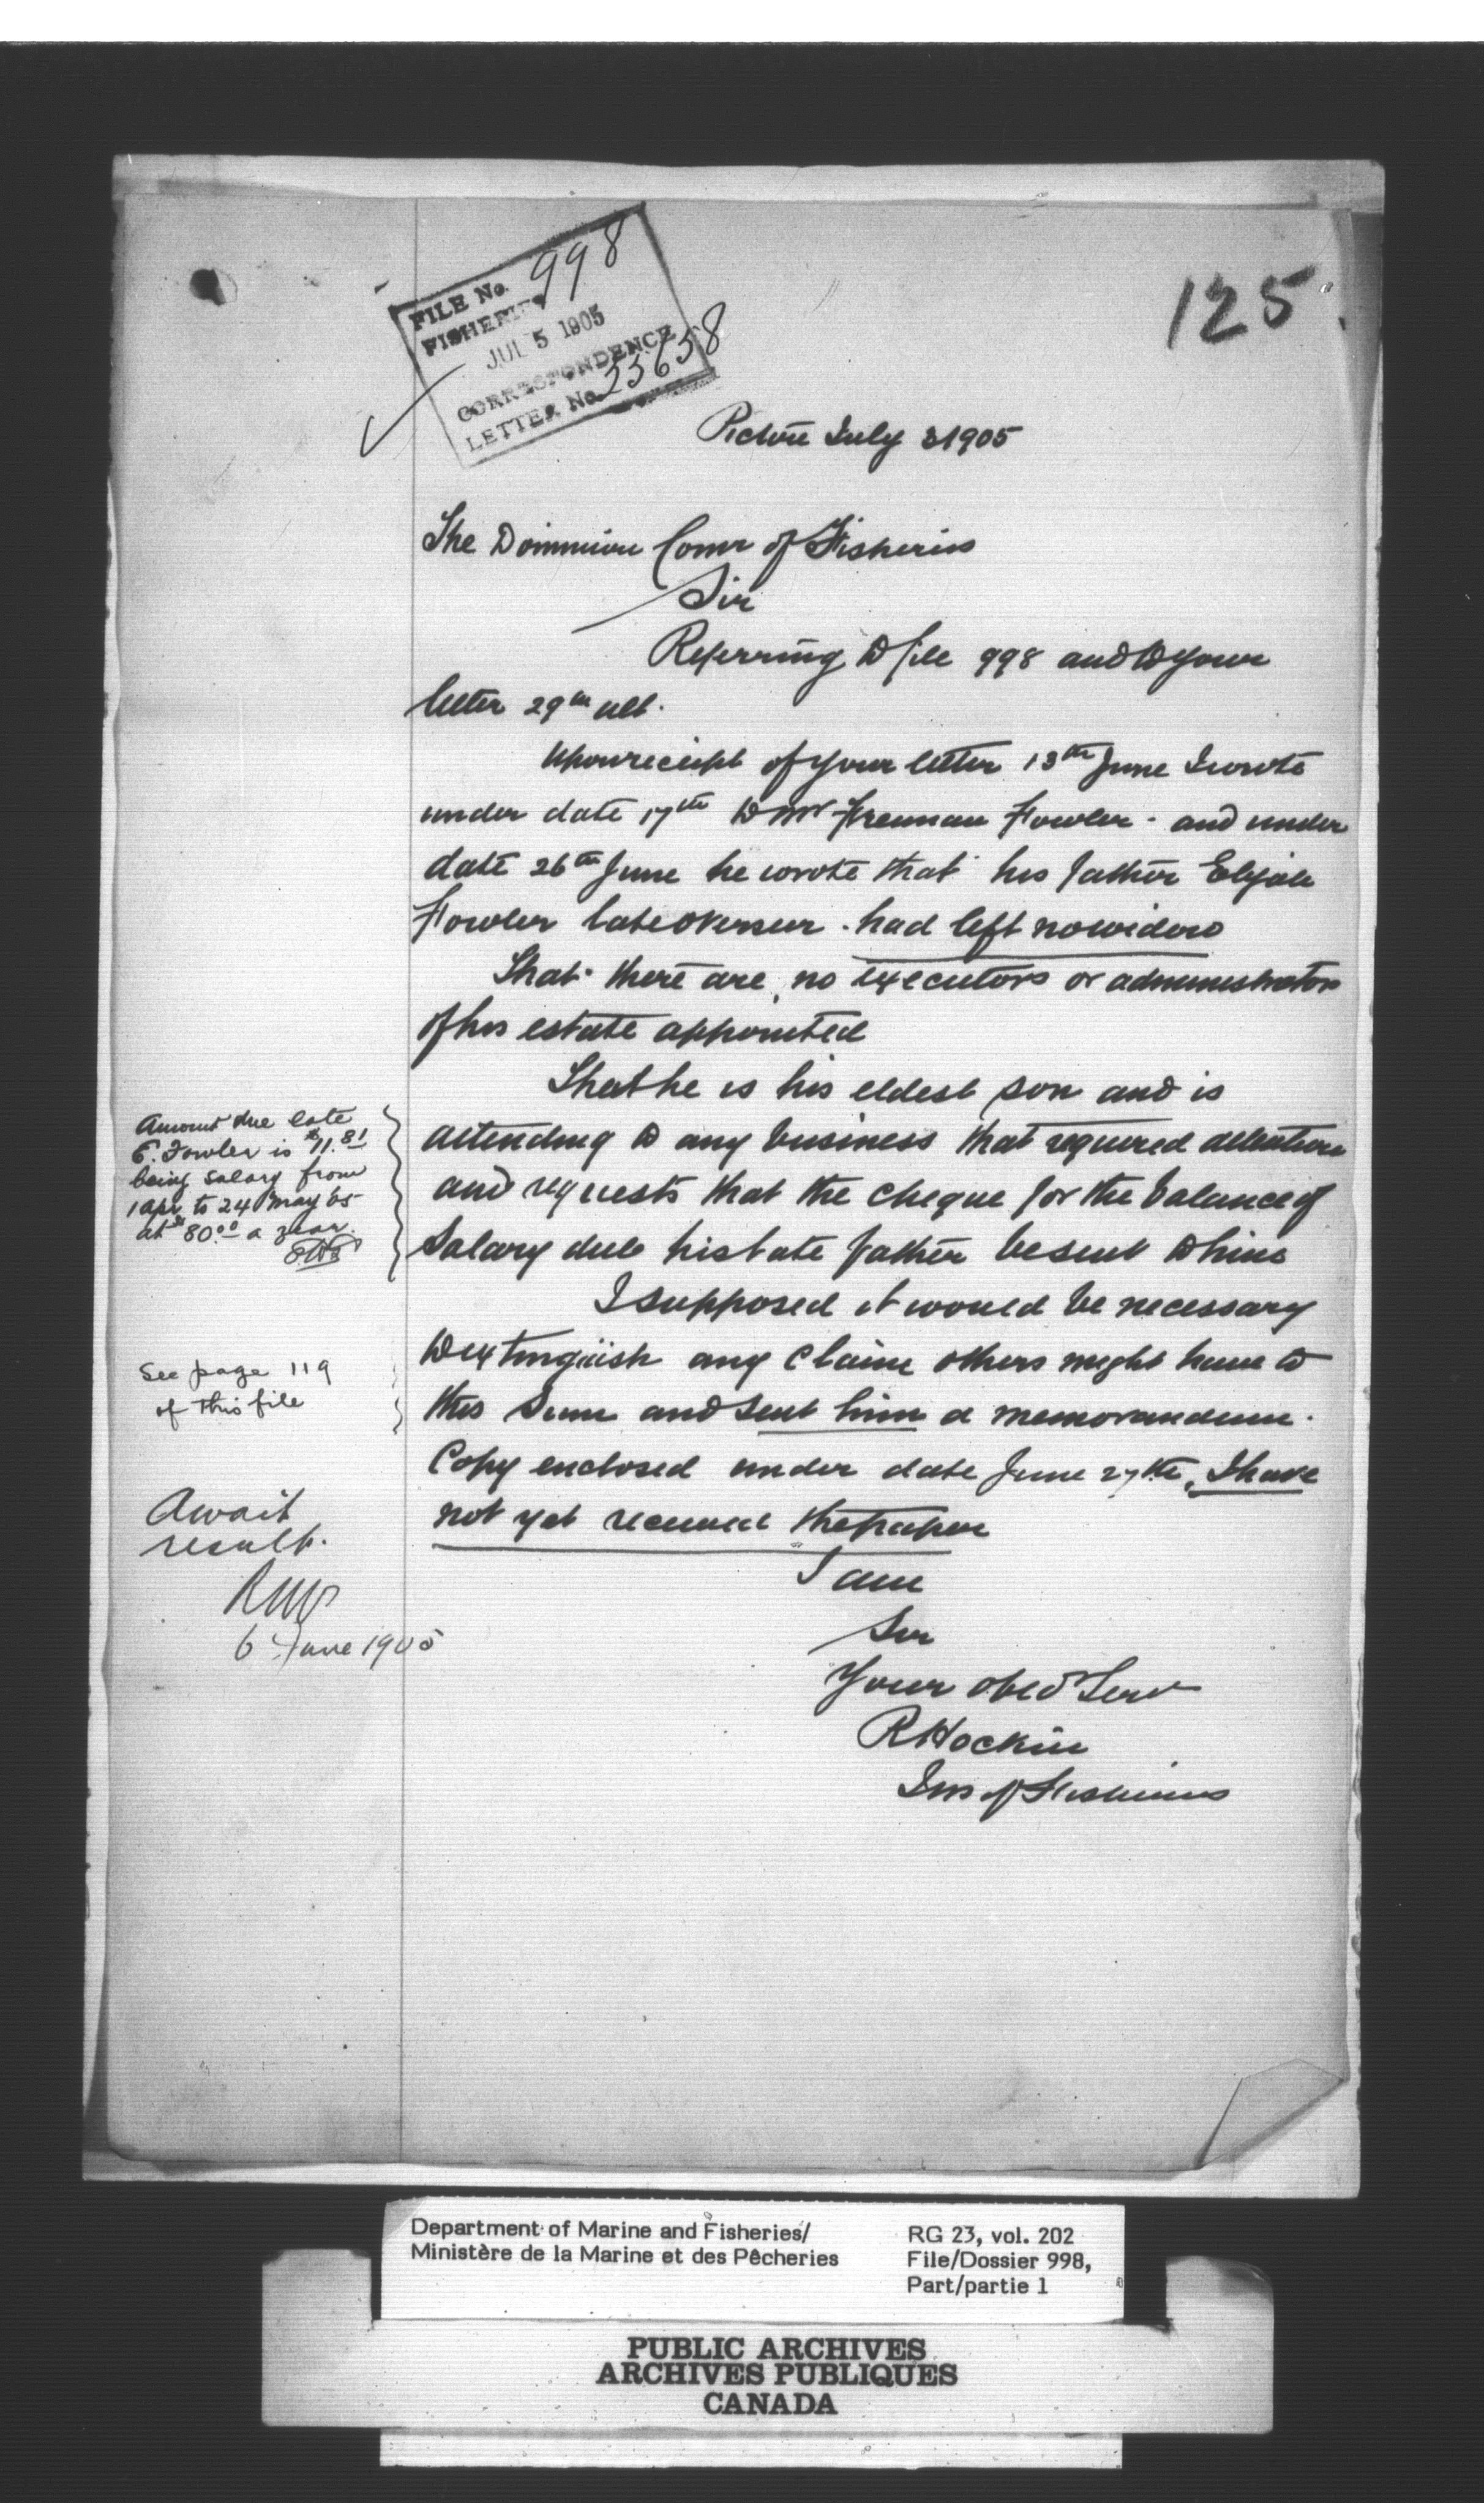 125
FILE No. 998
FISHERIES
JUL 5 1905
CORRESPONDENCE
LETTER No. 33658
Pictou July 3 1905
The Dominion Comr of Fisheries
Sir
Referring to file 998 and to your
letter 29th ult.
Upon receipt of your letter 13th June I wrote
under date 17th to Mr Freeman Fowler - and under
date 26th June he wrote that his father Elijah
Fowler late overseer. had left no widow
That there are no executors or administrators
of his estate appointed
That he is his eldest son and is
attending to any business that required attention
and requests that the cheque for the balance of
Salary due his late father be sent to him
I supposed it would be necessary
to extinguish any claim others might have to
this sum and sent him a memorandum.
Copy enclosed under date June 27th, I have
not yet received the paper
I am
Sir
Your obed Serv
R Hockin
Ins of Fisheries
Amount due late
E. Fowler is $11.81
being salary from
1 Apr. to 24 May '05
at $80.00 a year.
See page 119
of this file
Await
result.
6 June 1905
Department of Marine and Fisheries/
Ministère de la Marine et des Pêcheries
RG 23, vol. 202
File/Dossier 998,
Part/partie 1
PUBLIC ARCHIVES
ARCHIVES PUBLIQUES
CANADA